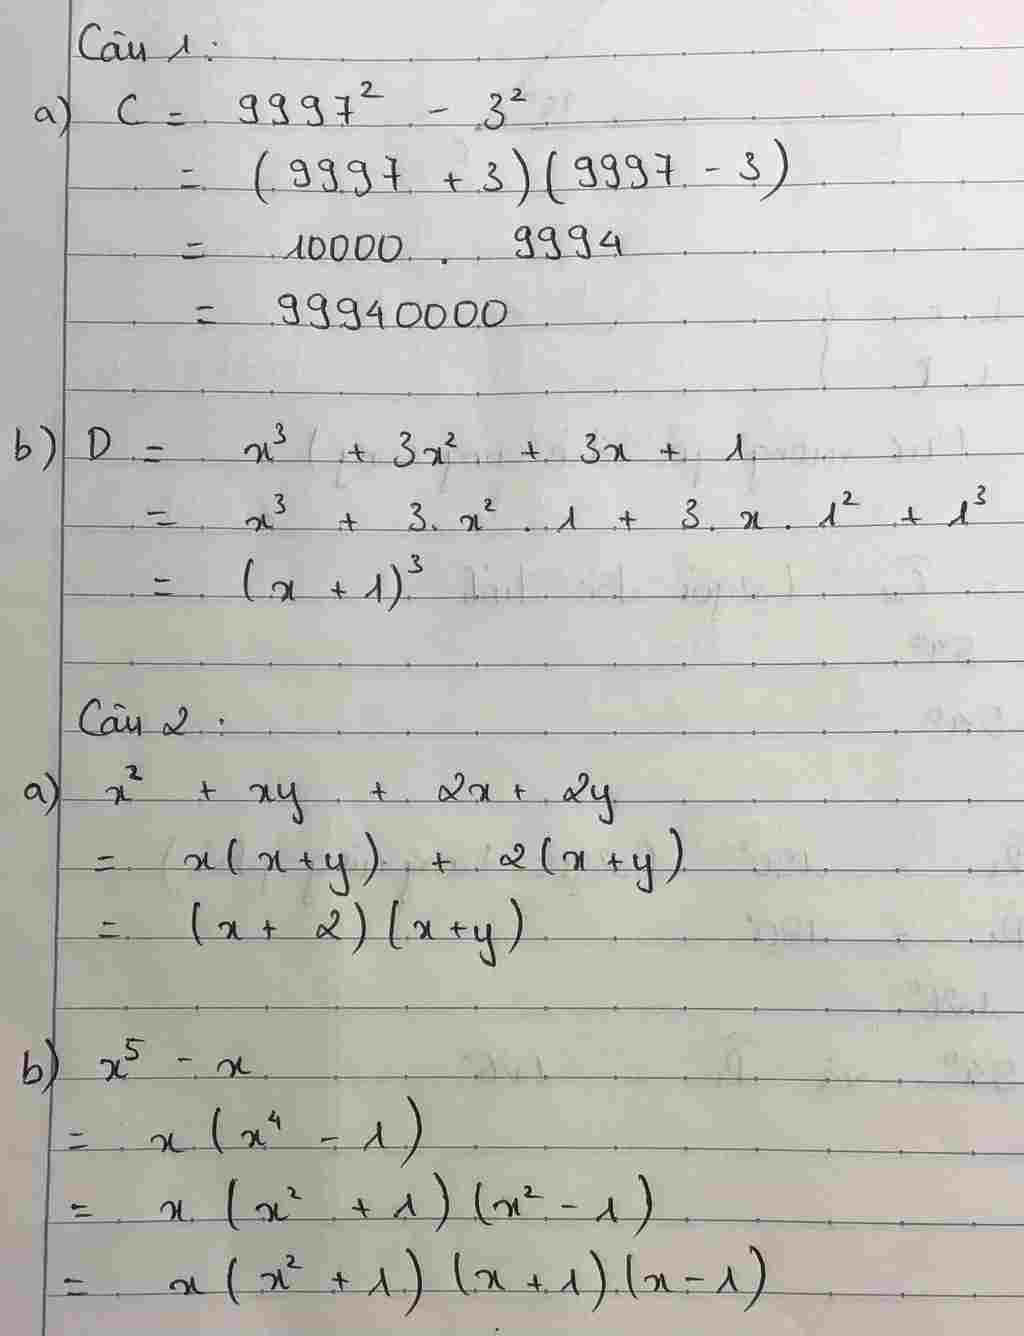 Câu 1:
a) C = 9997² - 3²
= (9997 + 3)(9997 - 3)
= 10000 . 9994
= 99940000
b) D = x³ + 3x² + 3x + 1
= x³ + 3. x² . 1 + 3. x . 1² + 1³
= (x + 1)³
Câu 2:
a) x² + xy + 2x + 2y
= x(x+y) + 2(x+y)
= (x + 2)(x+y)
b) x⁵ - x
= x(x⁴ - 1)
= x (x² + 1)(x² - 1)
= x(x² + 1)(x + 1)(x - 1)